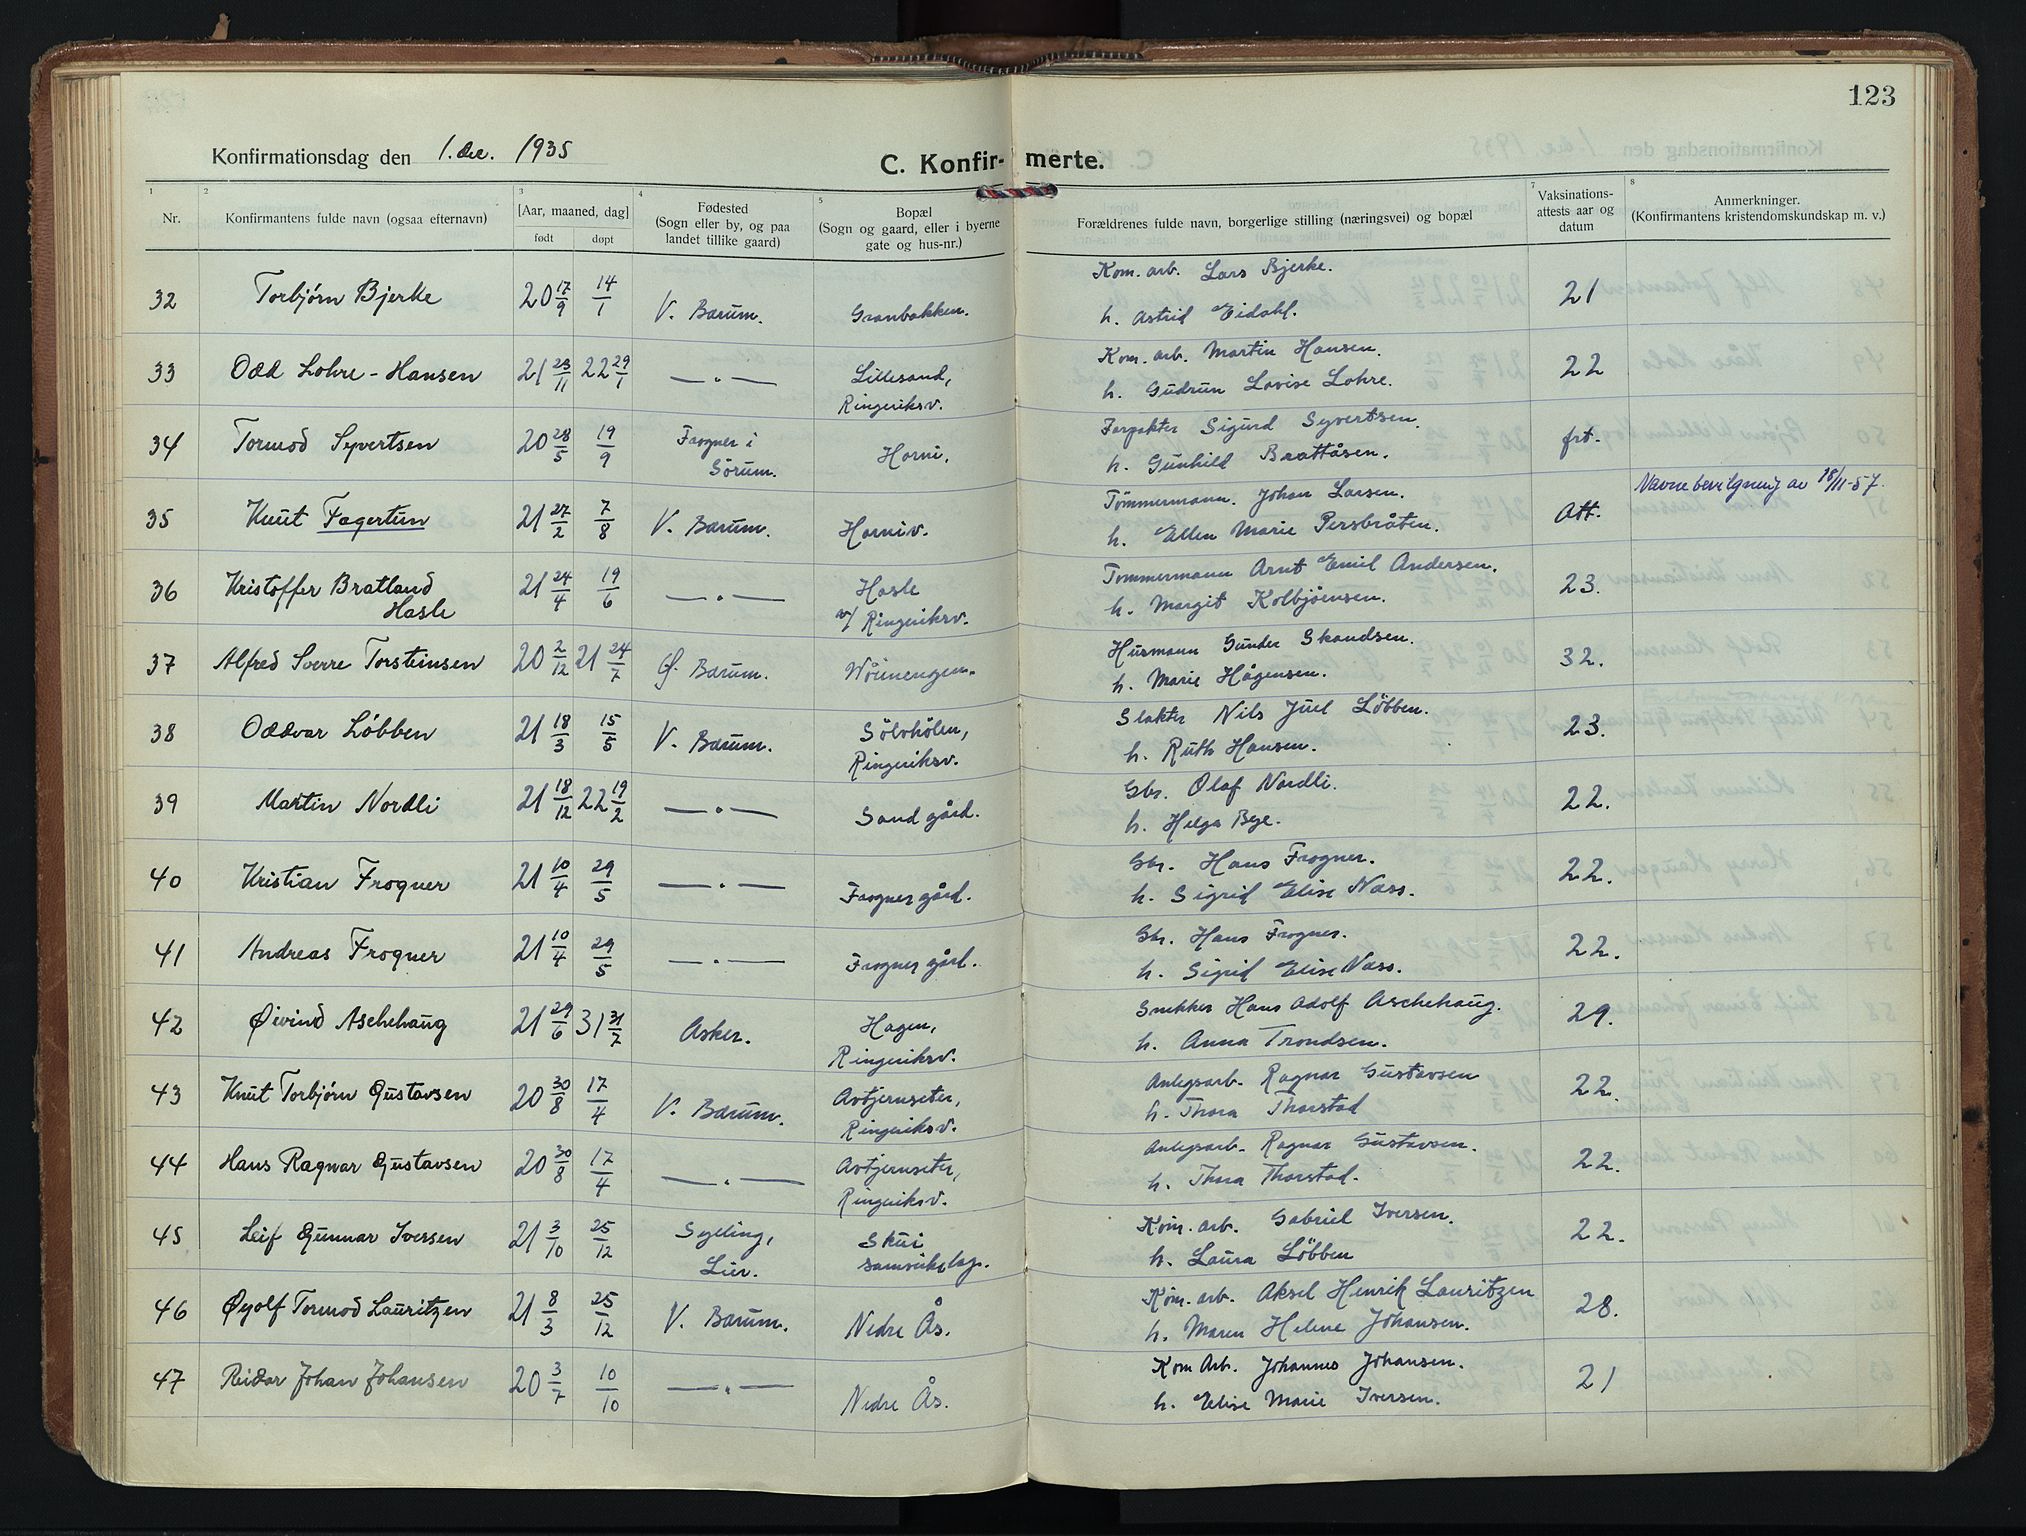 123
Konfirmationsdag den 1. des. 1935
C. Konfirmerte.
1 2 3 4 5 7 8
Nr.
Konfirmantens fulde navn (ogsaa efternavn)
[Aar, maaned, dag]
født døpt
Fødested
(Sogn eller by, og paa
landet tillike gaard)
Bopæl
(Sogn og gaard, eller i byerne
gate og hus-nr.)
Forældrenes fulde navn, borgerlige stilling (næringsvei) og bopæl
Vaksinations-
attests aar og
datum
Anmerkninger.
(Konfirmantens kristendomskundskap m. v.)
32 Torbjørn Bjerke 20 17/9 14/1 V. Bærum. Granbakken. Kom. arb. Lars Bjerke. 21
h. Astrid Eidahl.
33 Odd Lohre-Hansen 21 23/11 22 29/1 — " — Lillesand, Kom. arb. Martin Hansen. 22
Ringeriksv. h. Gudrun Lovise Lohre.
34 Tormod Syvertsen 20 28/5 19/9 Frogner i Horni. Forpakter Sigurd Syvertsen. frt.
Sörum. h. Gunhild Brattåsen.
35 Knut Fagertun 21 27/2 7/8 V. Bærum. Horniv. Tömmermann. Johan Larsen. Att. Navnebevilgning av 18/11-57.
h. Ellen Marie Persbråten.
36 Kristoffer Bratland 21 24/4 19/6 — " — Hasle Tommermann Arnt Emil Andersen. 23.
Hasle v/ Ringeriksv. h. Margit Kolbjörnsen.
37 Alfred Sverre Torsteinsen 20 2/12 21 24/7 Ø. Bærum. Wöinengen. Husmann Gunder Skandsen. 32.
h. Marie Hågensen.
38 Oddvar Løbben 21 18/3 15/5 V. Bærum. Sölvhölen, Slakter Nils Juel Löbben. 23.
Ringeriksv. h. Ruth Hansen.
39 Martin Nordli 21 18/12 22 19/2 — " — Sand gård. Gbr. Olaf Nordli. 22.
h. Helga Bye.
40 Kristian Frogner 21 10/4 29/5 — " — Frogner gård. Gbr. Hans Frogner. 22.
h. Sigrid Elise Næss.
41 Andreas Frogner 21 10/4 29/5 — " — Frogner gård. Gbr. Hans Frogner. 22.
h. Sigrid Elise Næss.
42 Øivind Aschehaug 21 29/6 31 31/7 Asker. Hagen, Snekker Hans Adolf Aschehaug. 29.
Ringeriksv. h. Anna Trondsen.
43 Knut Torbjørn Gustavsen 20 30/8 17/4 V. Bærum. Avtjernseter, Anlegsarb. Ragnar Gustavsen 22.
Ringeriksv. h. Thora Thorstad
44 Hans Ragnar Gustavsen 20 30/8 17/4 — " — Avtjernseter, Anlegsarb. Ragnar Gustavsen. 22.
Ringeriksv. h. Thora Thorstad.
45 Leif Gunnar Iversen 21 3/10 25/12 Sylling, Skui Kom. arb. Gabriel Iversen. 22.
Lier. samvirkelag. h. Laura Löbben
46 Øyolf Tormod Lauritzen 21 8/3 25/12 V. Bærum. Nedre Ås. Kom. arb. Aksel Henrik Lauritzen 28.
h. Maren Helene Johansen.
47 Reidar Johan Johansen 20 3/7 10/10 — " — Nedre Ås. Kom Arb. Johannes Johansen. 21
h. Elise Marie Iversen.